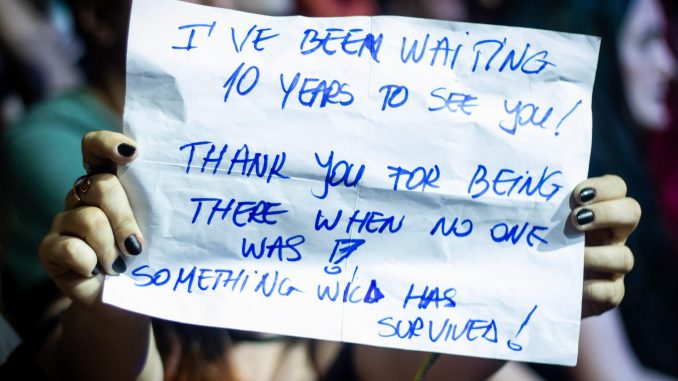 I'VE BEEN WAITING
10 YEARS TO SEE YOU!
THANK YOU FOR BEING
THERE WHEN NO ONE
WAS !?
SOMETHING WILD HAS
SURVIVED!